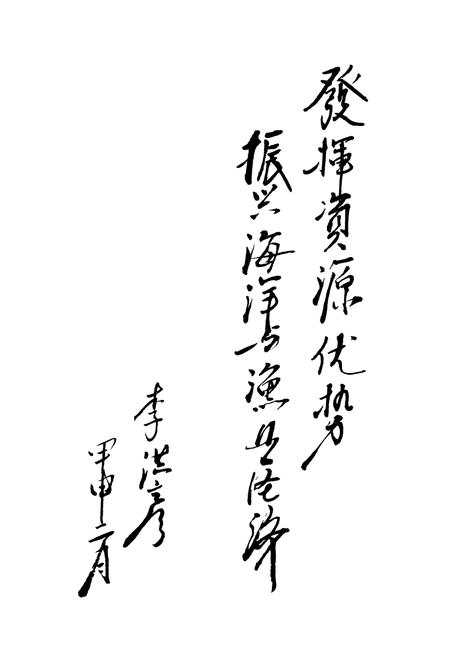 發揮資源优势
振兴海洋与漁业经济
李洪彦
甲申二月